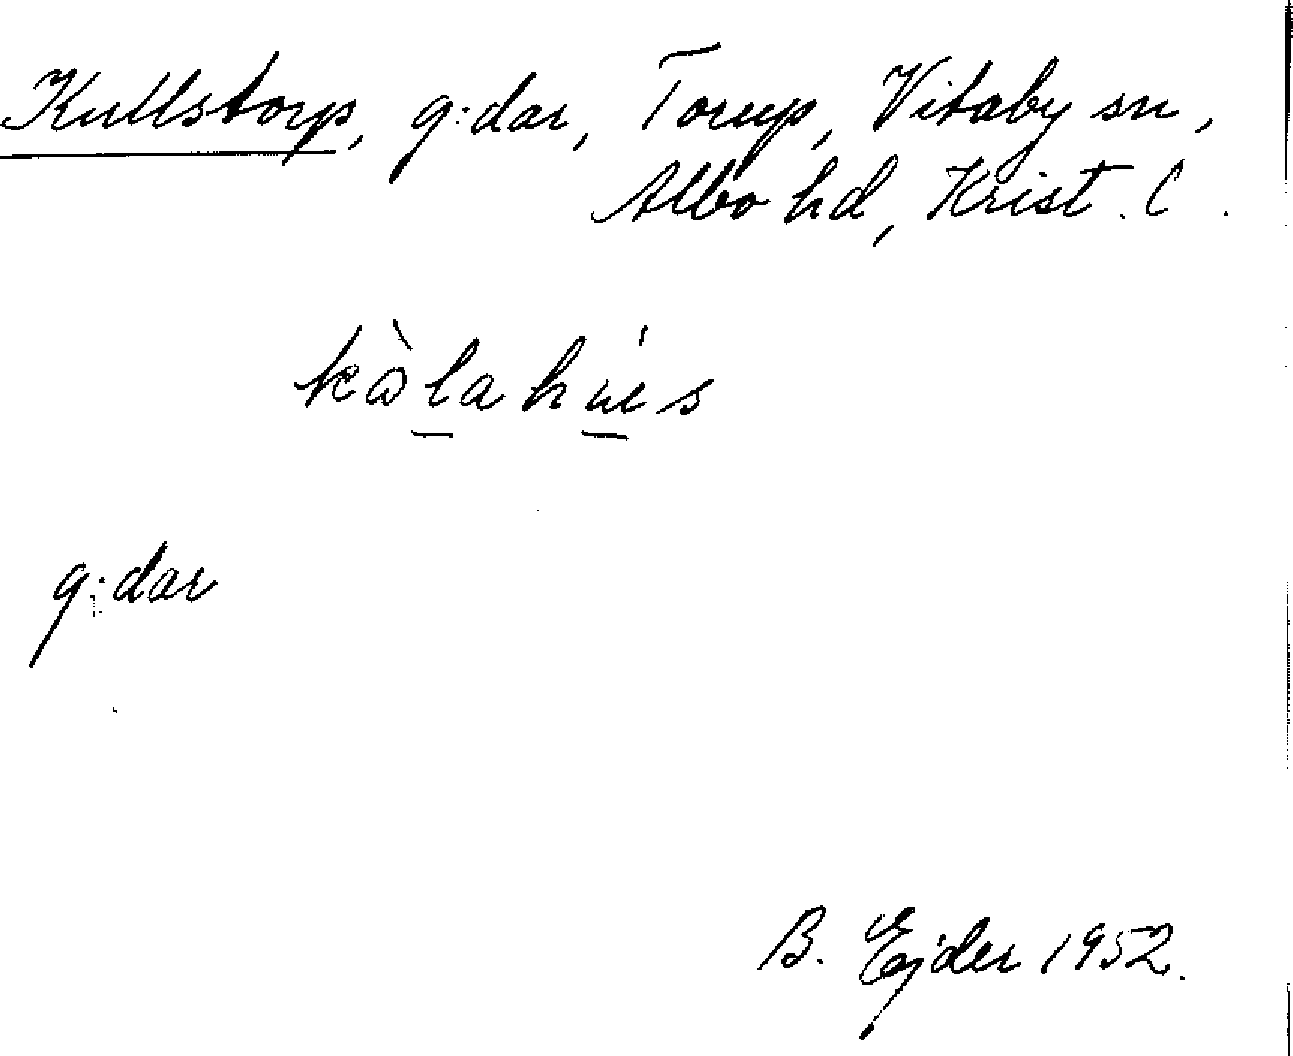 Kullstorp, g:dar, Torup, Vitaby sn,
Albo hd, Krist. l.
kɷ̀l̲ahú̲s
g:dar
B. Ejder 1952.